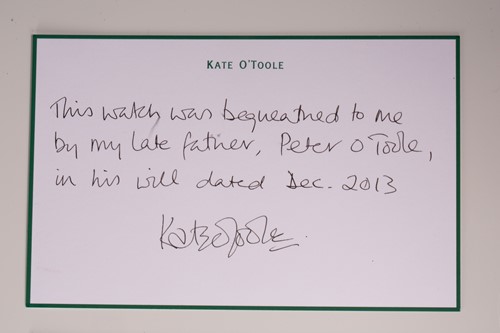 KATE O'TOOLE
This watch was bequeathed to me
by my late father, Peter O'Toole,
in his will dated Dec. 2013
Kate O'Toole.